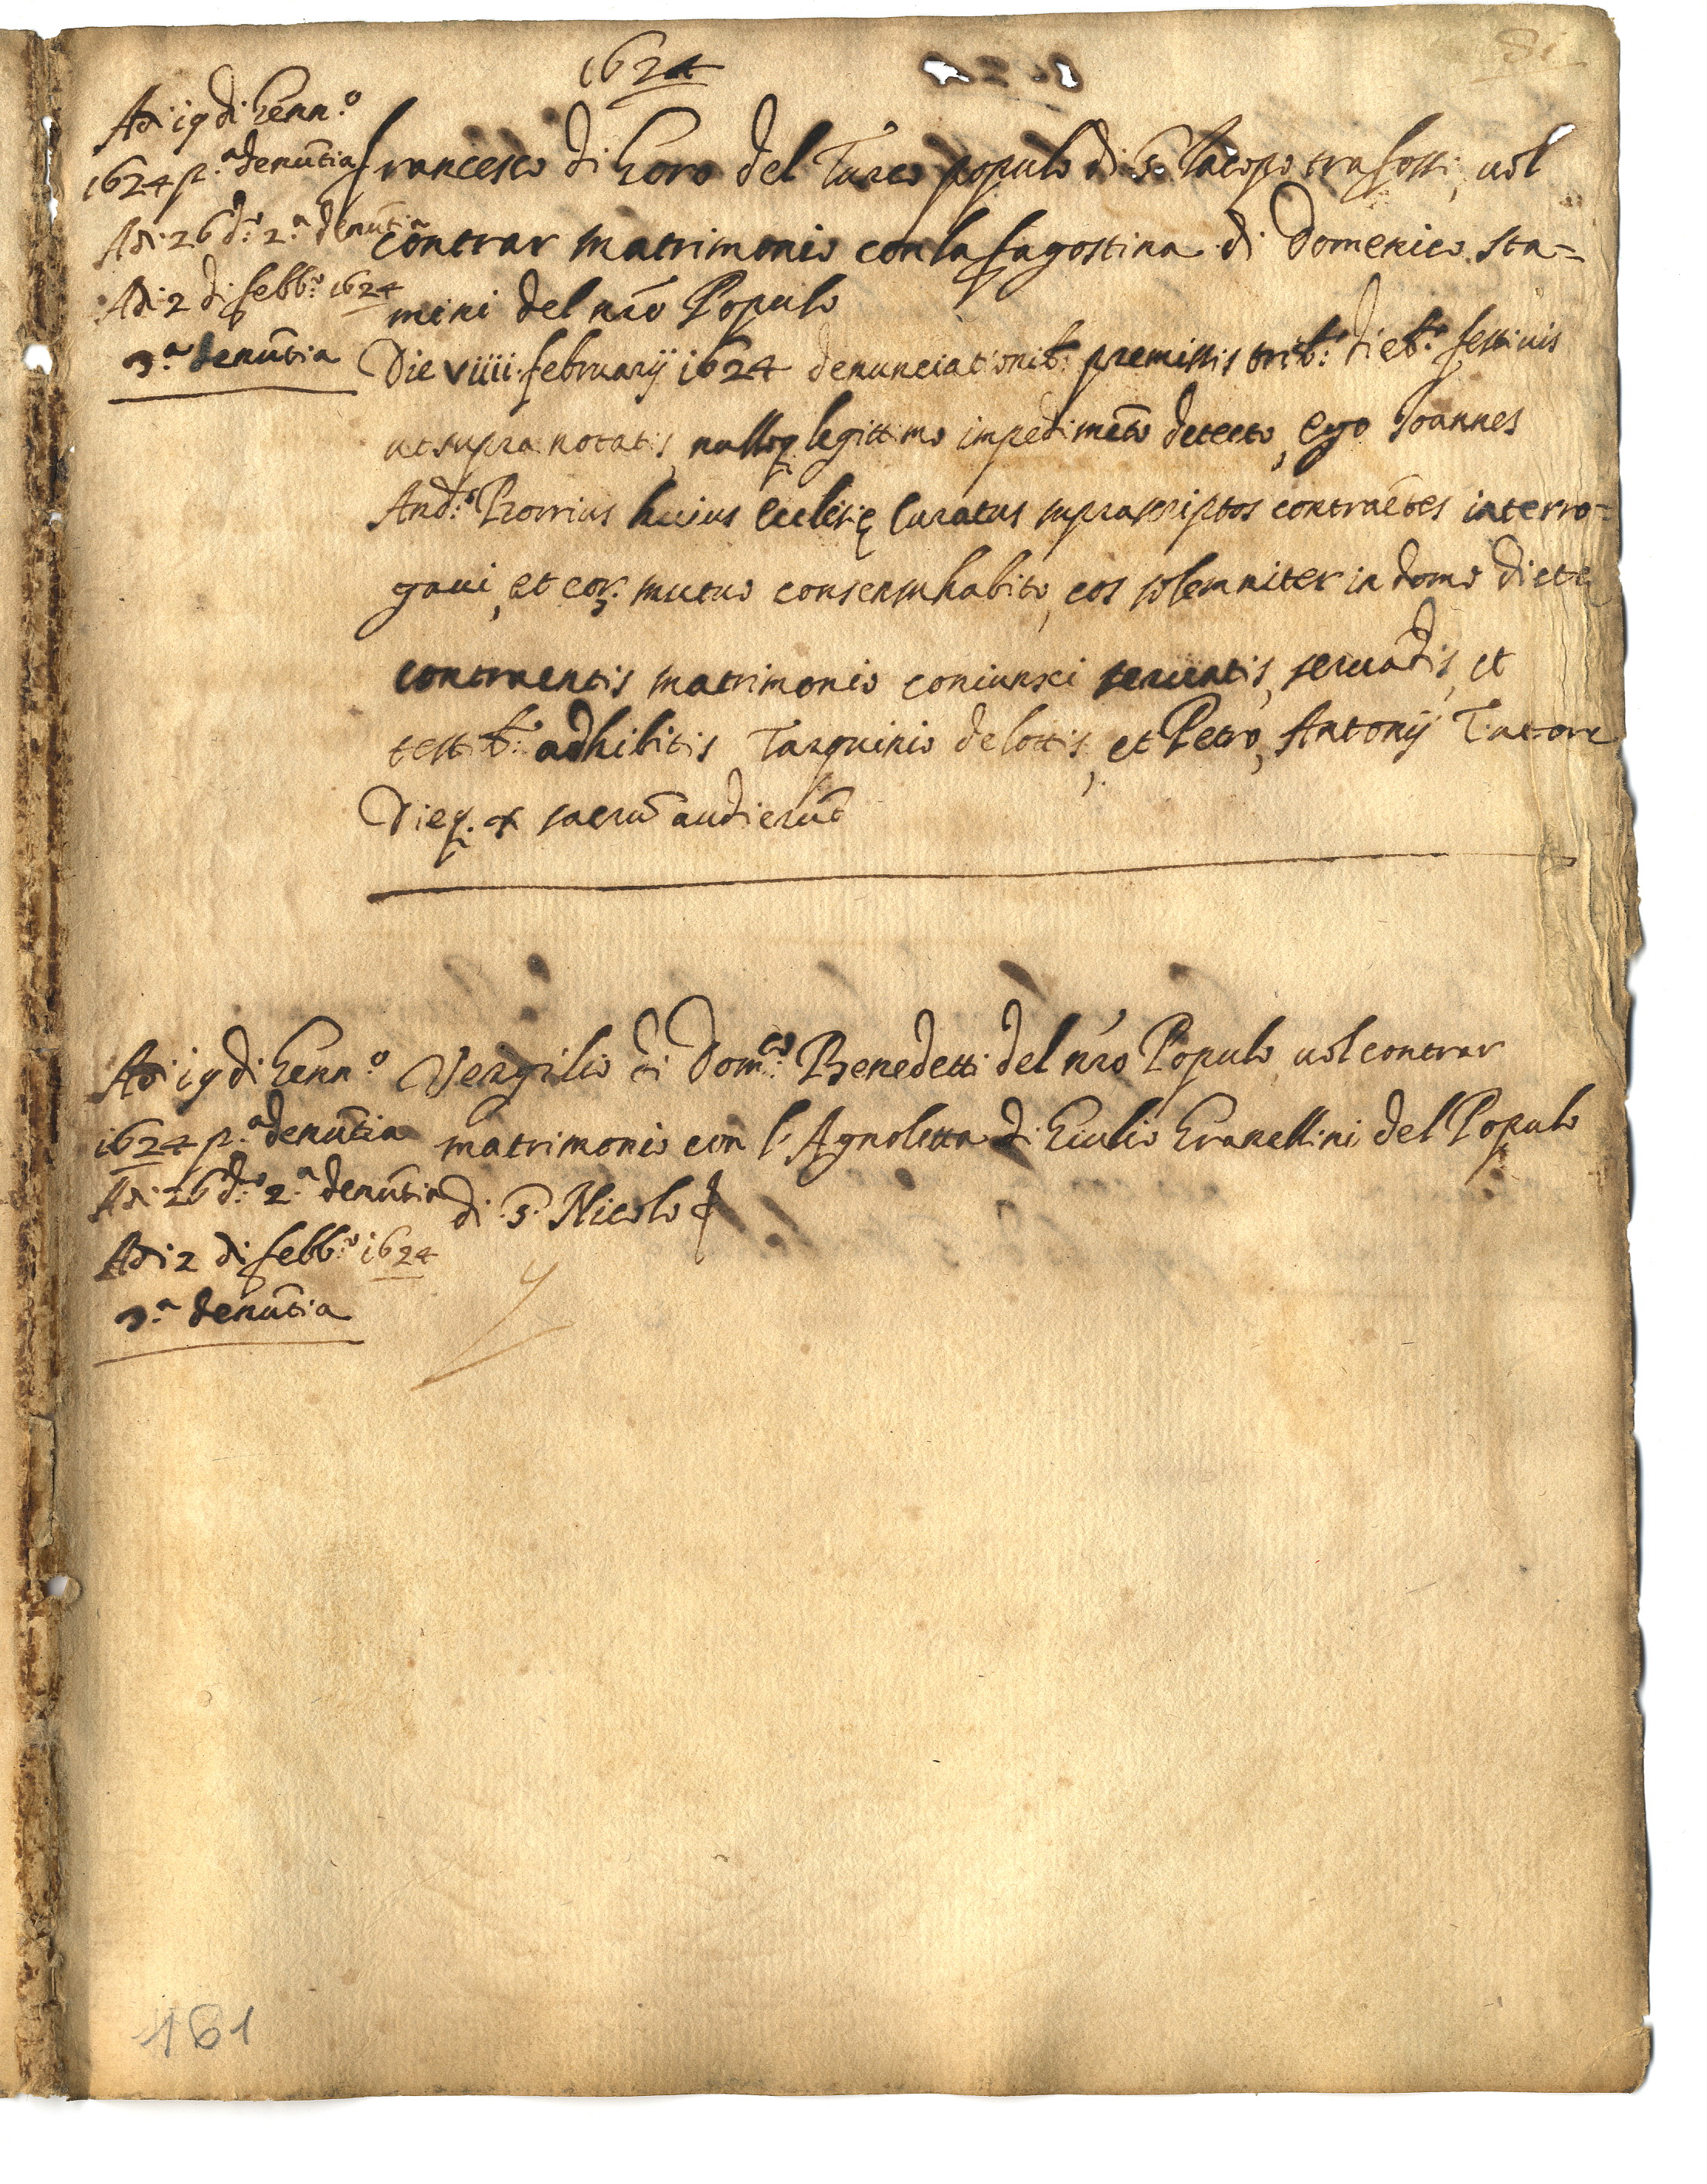 1624
81
Adi 19 di Genn.º
1624 p.ª denũtia
Adi 26 d.º 2.ª denũtia
Adi 2 di febb.º 1624
3.ª denũtia
francesco di Goro del Turco populo di S. Iacopo tra fossi, uol
contrar matrimonio con la fagostina di Domenico sta=
mini del nr̃o Populo
Die viiii februarij 1624 denunciationib: premissis trib: dieb: festiuis
ut supra notatis, nulloq legittimo impedimẽto detecto, ego Ioannes
And.s huius ecclesię Curatus suprascriptos contraẽtes interro=
gaui, et eor: mutuo consensu habito, eos solemniter in domo dicte
contraentis matrimonio coniunxi seruatis, seruãdis, et
testib: adhibitis Tarquinio de lottis, et Petro, Antonij Tutore
Dieq. sacrũ audierũt
Adi 19 di Genn.º
1624 p.ª denũtia
Adi 26 d.º 2.ª denũtia
Adi 2 di febb.º 1624
3.ª denũtia
Vergilio di Dom.co Benedetti del nr̃o Populo uol contrar
matrimonio con l'Agnoletta di Giulio Granellini del Populo
di S. Nicolo
161